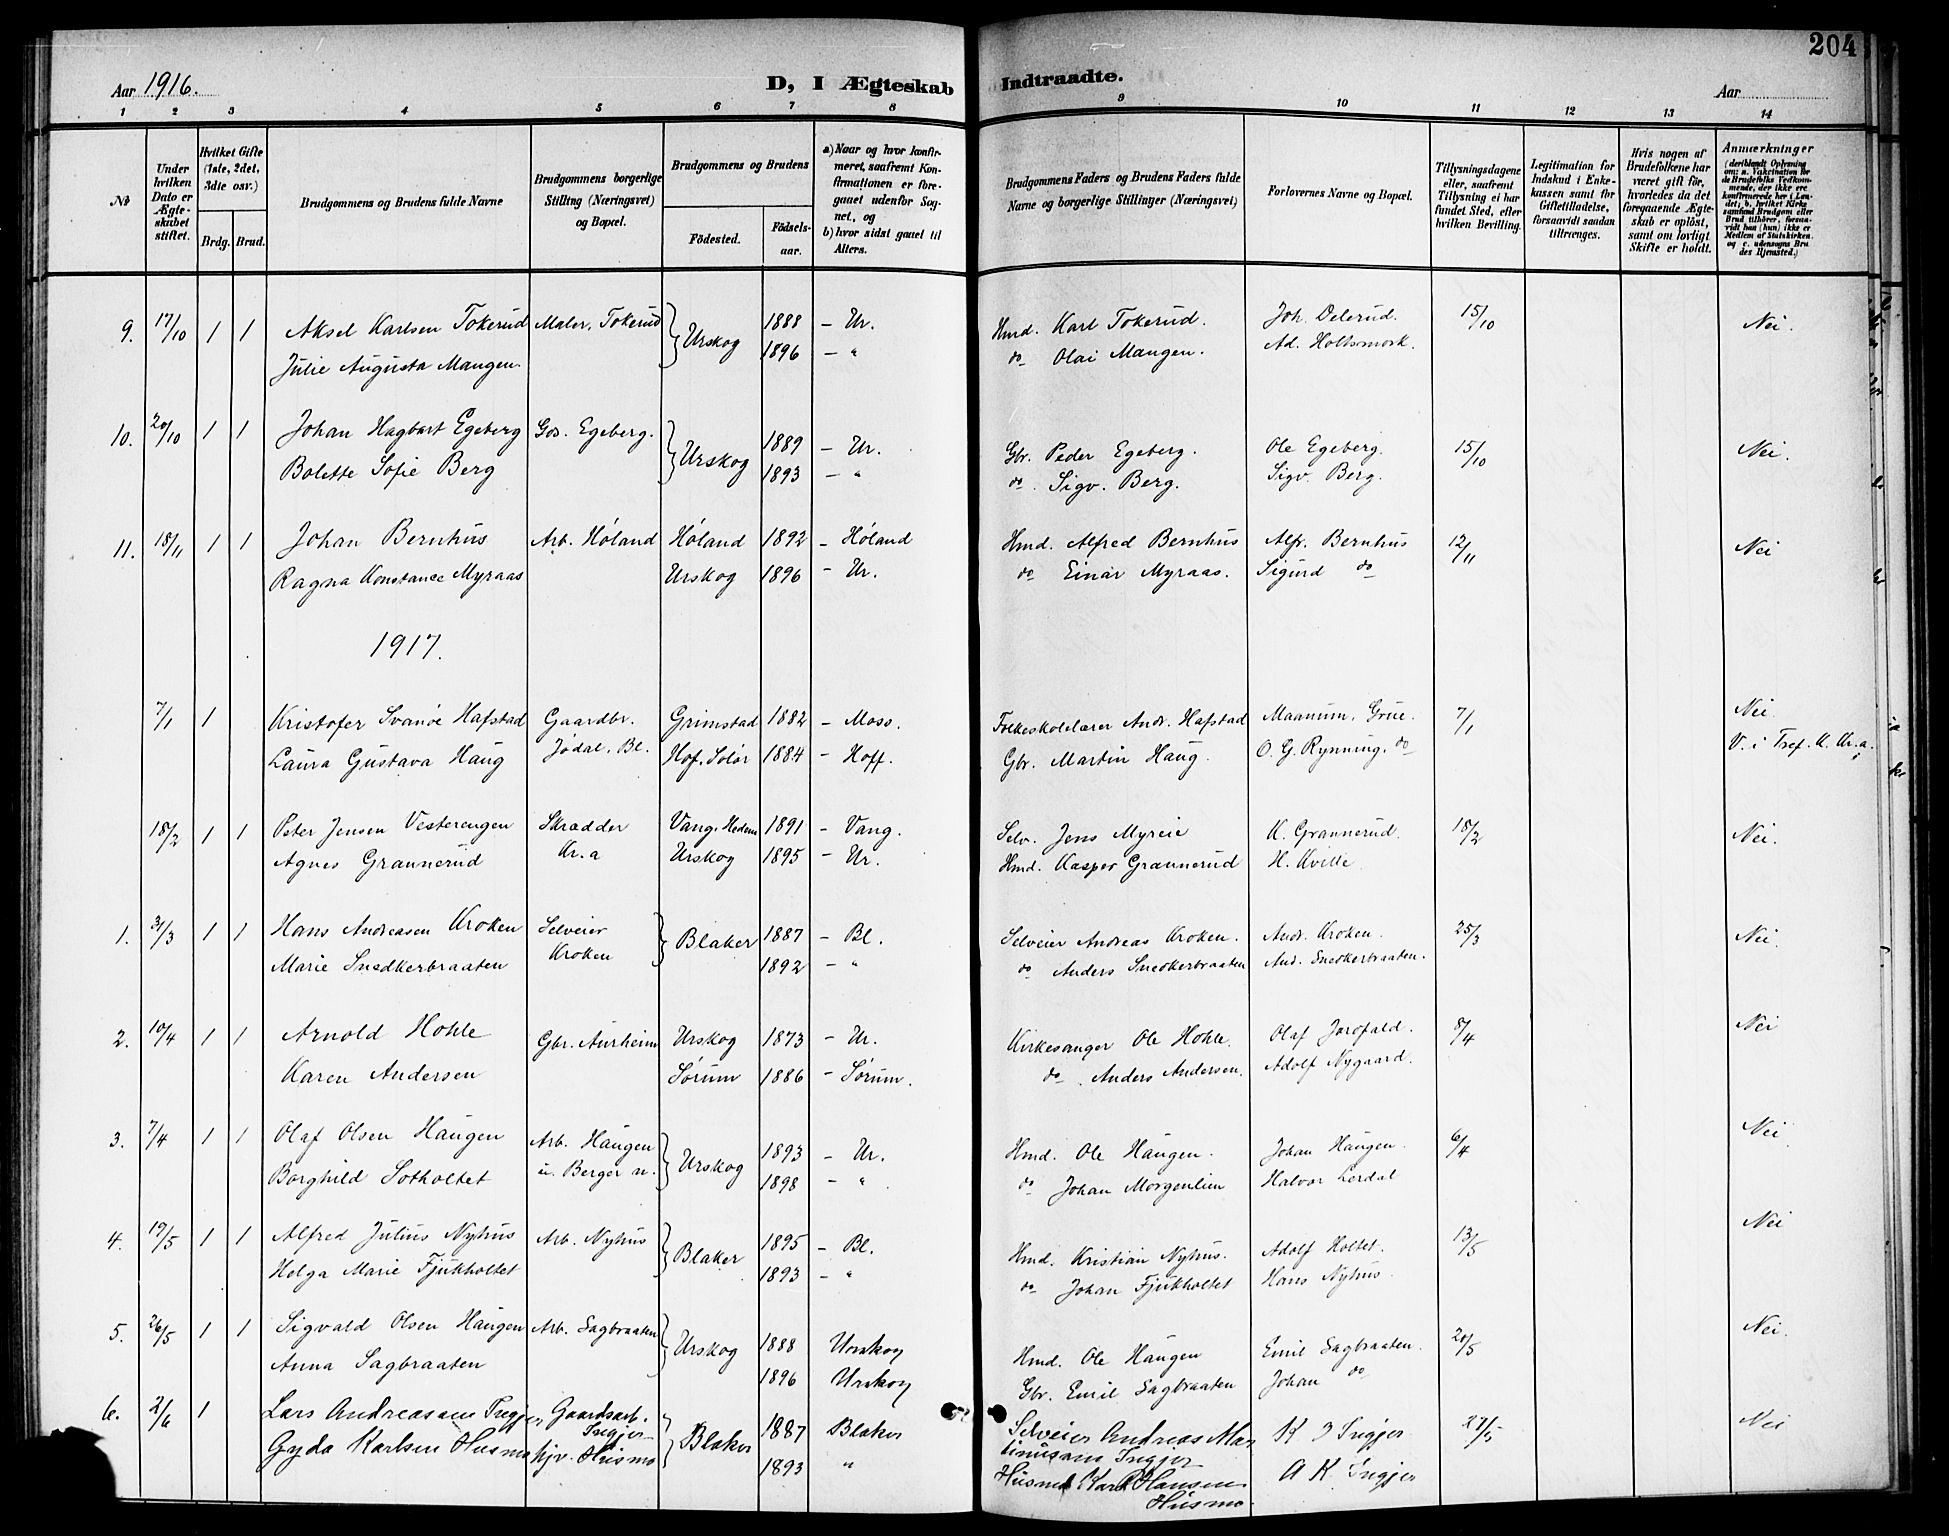 204
Aar 1916. D, I Ægteskab Indtraadte. Aar
1 2 3 4 5 6 7 8 9 10 11 12 13 14
№
Under hvilken Dato er Ægteskabet stiftet.
Hvilket Gifte (1ste, 2det, 3die osv.)
Brdg. Brud.
Brudgommens og Brudens fulde Navne
Brudgommens borgerlige Stilling (Næringsvei) og Bopæl.
Brudgommens og Brudens
Fødested. Fødselsaar.
a) Naar og hvor konfirmeret, saafremt Konfirmationen er foregaaet udenfor Sognet, og
b) hvor sidst gaaet til Alters.
Brudgommens Faders og Brudens Faders fulde Navne og borgerlige Stillinger (Næringsvei)
Forlovernes Navne og Bopæl.
Tillysningsdagene eller, saafremt Tillysning ei har fundet Sted, efter hvilken Bevilling.
Legitimation for Indskud i Enkekassen samt for Giftetilladelse, forsaavidt saadan tiltrænges.
Hvis nogen af Brudefolkene har været gift før, hvorledes da det foregaaende Ægteskab er opløst, samt om lovligt Skifte er holdt.
Anmærkninger
(deriblandt Oplysning om: a. Vakcination for de Brudefolks Vedkommende, der ikke ere konfirmerede her i Landet; b. hvilket Kirkesamfund Brudgom eller Brud tilhører, forsaavidt han (hun) ikke er Medlem af Statskirken, og c. udensogns Brudes Hjemsted.)
9. 17/10 1 1 Aksel Karlsen Tokerud Maler, Tokerud } Urskog 1888 – Ur. Hmd. Karl Tokerud. Joh. Delerud. 15/10 Nei.
Julie Augusta Mangen 1896 – " do Olai Mangen. Ad. Holtsmork.
10. 20/10 1 1 Johan Hagbart Egeberg Gds. Egeberg. } Urskog 1889 – Ur. Gbr. Peder Egeberg. Ole Egeberg. 15/10 Nei.
Bolette Sofie Berg 1893 – " do Sigv. Berg. Sigv. Berg.
11. 18/11 1 1 Johan Bernhus Arb. Høland Høland 1892 – Høland Hmd. Alfred Bernhus Alfr. Bernhus 12/11 Nei
Ragna Konstance Myraas Urskog 1896 – Ur. do Einar Myraas. Sigurd do
1917.
7/1 1 Kristofer Svanøe Hafstad Gaardbr. Grimstad 1882 – Moss. Folkeskolelærer Andr. Hafstad Maanum, Grue. 7/1 Nei.
Laura Gustava Haug Jødal, Bl. Hof, Solør 1884 – Hoff. Gbr. Martin Haug. O. G. Rynning. do V. i Tref. K. Kr.a.
18/2 1 1 Peter Jensen Vesterengen Skrædder Vang, Hedem 1891 – Vang. Selv. Jens Myreie K. Grannerud 18/2 Nei.
Agnes Grannerud Kr.a Urskog 1895 – Ur. Hmd. Kasper Grannerud H. Kville
1. 31/3 1 1 Hans Andreasen Kroken Selveier } Blaker 1887 – Bl. Selveier Andreas Kroken. Andr. Kroken. 25/3 Nei.
Marie Snedkerbraaten Kroken 1892 – " do Anders Snedkerbraaten And. Snedkerbraaten.
2. 10/4 1 1 Arnold Hohle Gbr. Aurheim Urskog 1873 – Ur. Kirkesanger Ole Hohle. Olaf Jorofald. 8/4 Nei
Karen Andersen Sørum 1886 – Sørum. do Anders Andersen. Adolf Nygaard.
3. 7/4 1 1 Olaf Olsen Haugen Arb. Haugen } Urskog 1893 – Ur. Hmd. Ole Haugen. Johan Haugen. 6/4 Nei.
Borghild Sotholtet u. Berger n. 1898 – " do Johan Morgenlien Halvor Lerdal
4. 19/5 1 1 Alfred Julius Nyhus Arb. Nyhus } Blaker 1895 – Bl. Hmd. Kristian Nyhus. Adolf Holtet. 13/5 Nei
Helga Marie Fjukholtet 1893 – " do Johan Fjukholtet Hans Nyhus.
5. 26/5 1 1 Sigvald Olsen Haugen Arb. Sagbraaten } Urskog 1888 Urskog Hmd. Ole Haugen Emil Sagbraaten. 20/5 Nei.
Anna Sagbraaten 1896 Urskog Gbr. Emil Sagbraaten Johan do
6. 2/6 1 Lars Andreasen Ingjer Gaardsarb. Ingjer } Blaker 1887 Blaker Selveier Andreas Martinusen Ingjer K J Ingjer 27/5 Nei
Gyda Karlsen Husmo hjv. Husmo 1893 " Husmd Karl Hansen Husmo A K. Ingjer